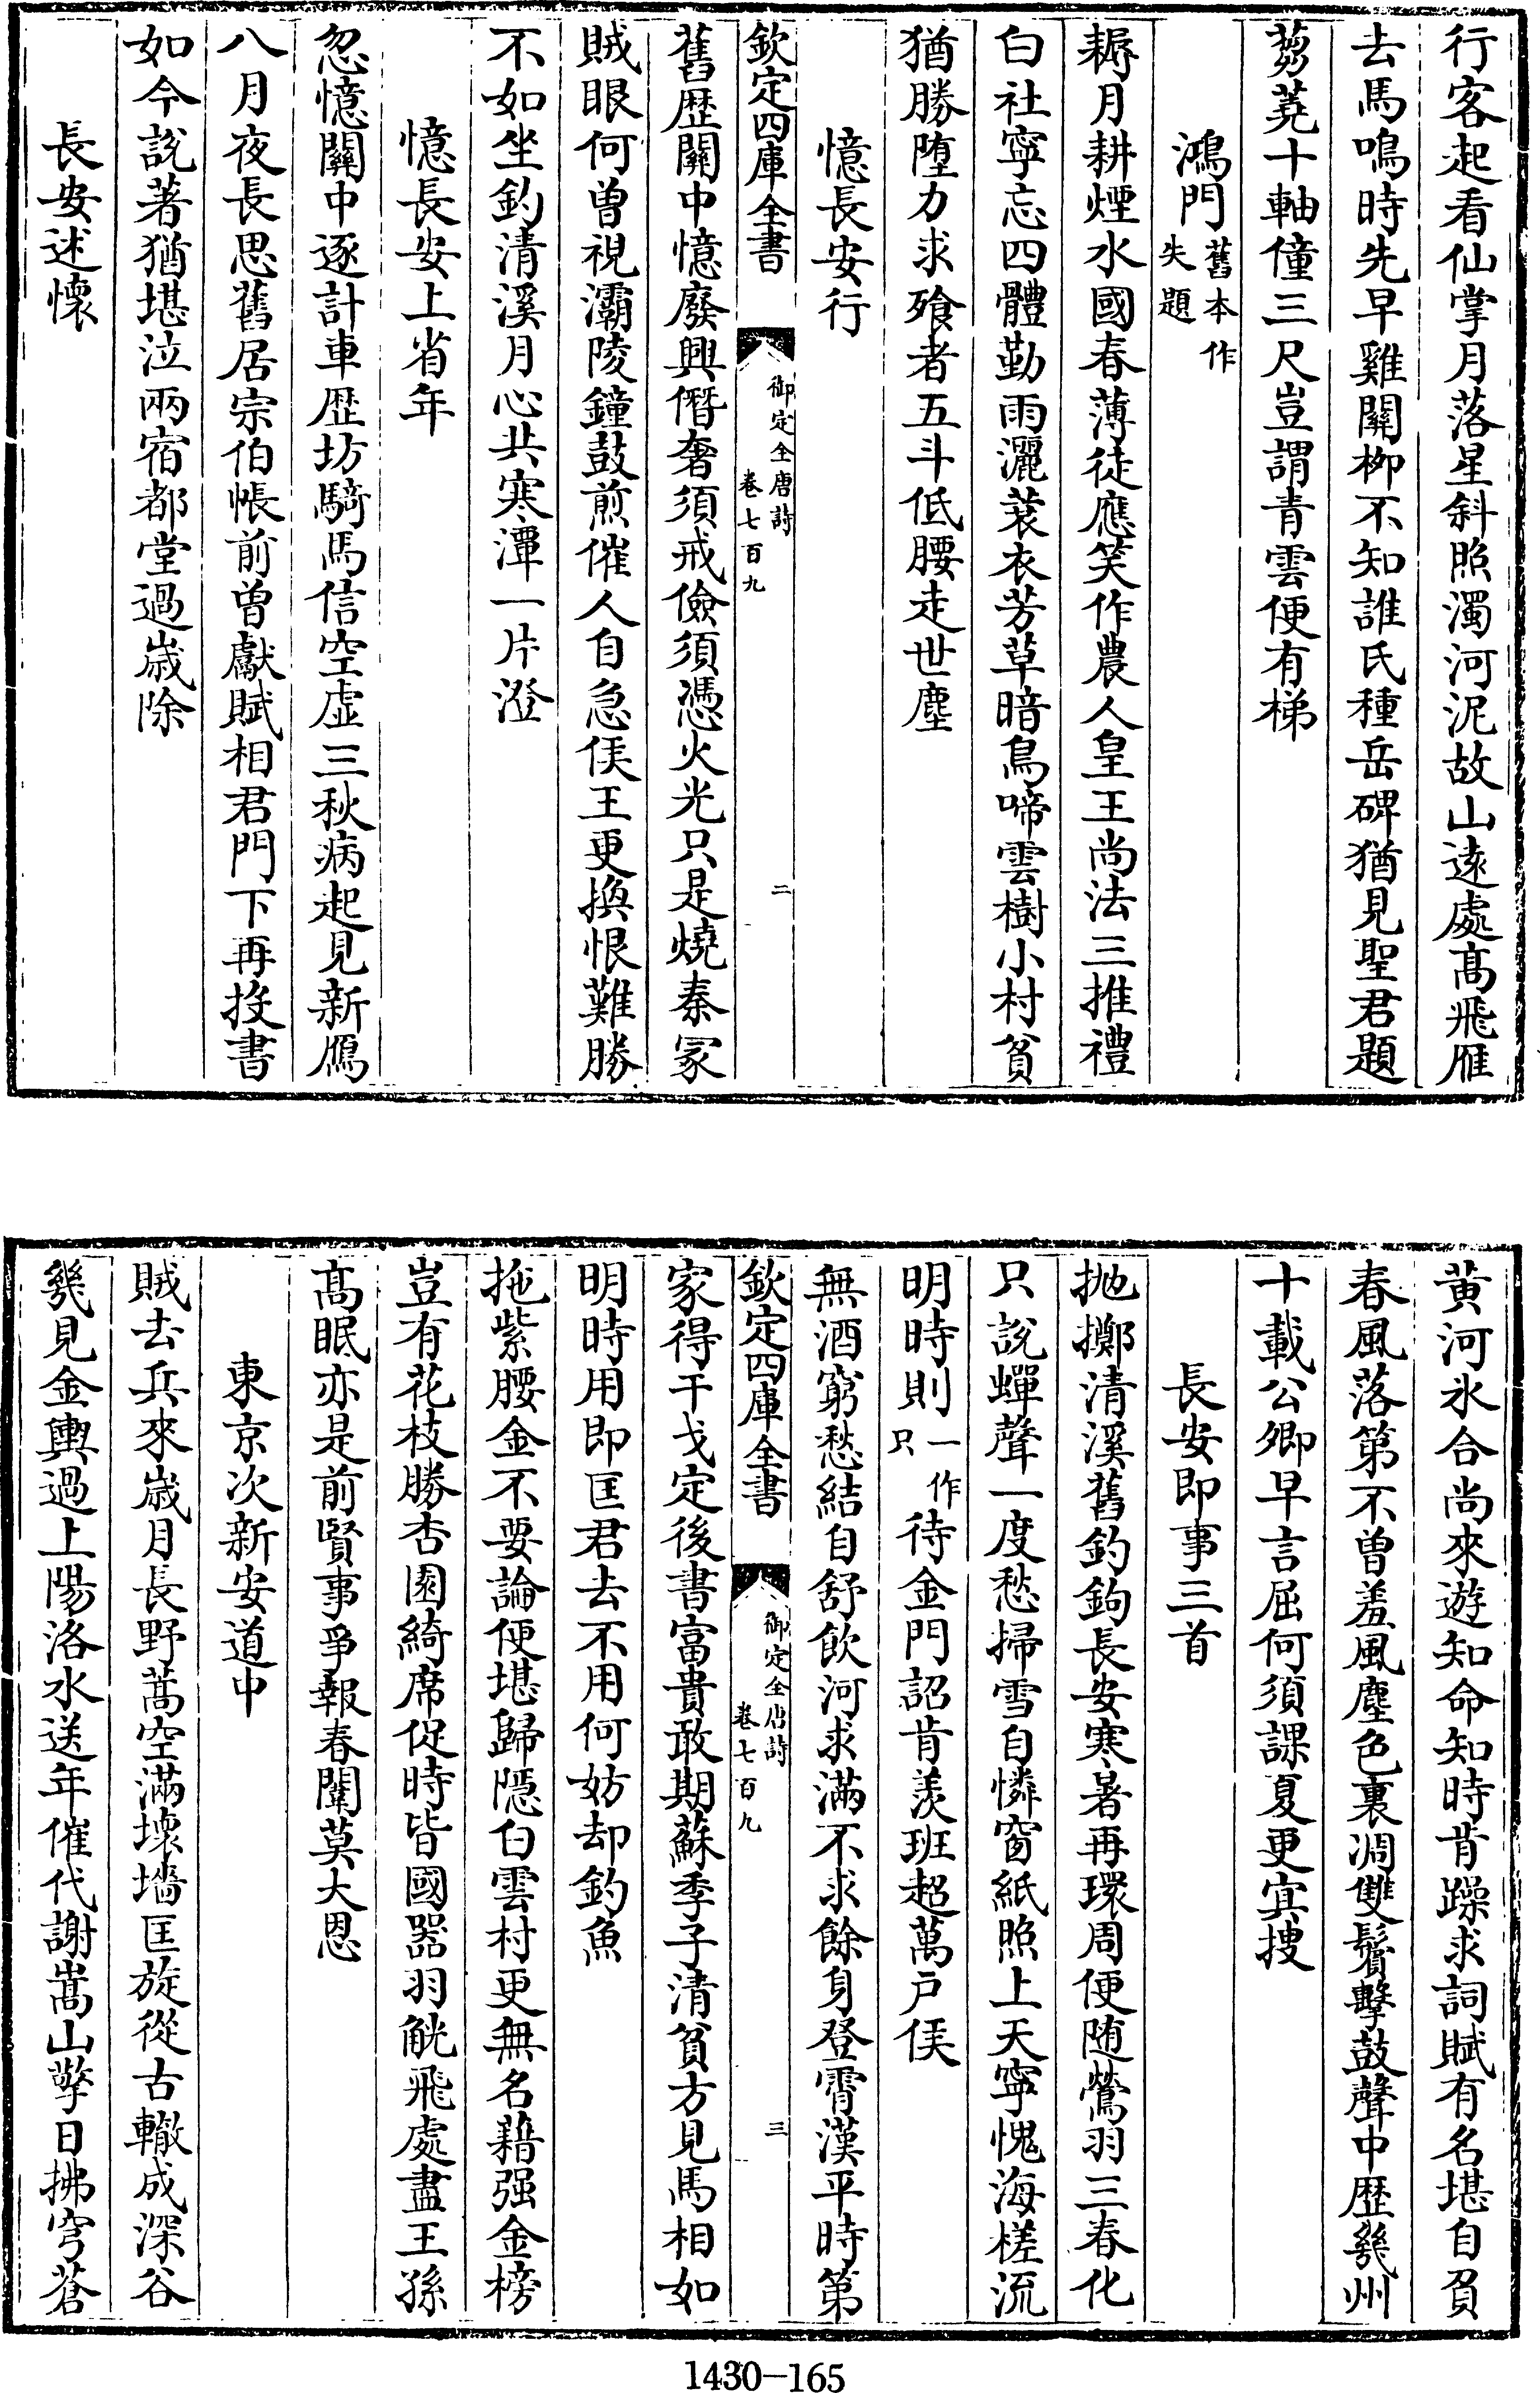 行客起看仙掌月落星斜照濁河泥故山遠處髙飛雁
去馬鳴時先早雞關栁不知誰氏種岳碑猶見聖君題
蒭蕘十軸僮三尺豈謂青雲便有梯
鴻門舊本作失題
耨月耕煙水國春薄徒應笑作農人皇王尚法三推禮
白社寧忘四體勤雨灑蓑衣芳草暗鳥啼雲樹小村貧
猶勝墮力求飱者五斗低腰走世塵
憶長安行
欽定四庫全書
御定全唐詩
卷七百九
二
舊歴關中憶廢興僭奢須戒儉須憑火光只是燒秦冢
賊眼何曽視灞陵鐘鼓煎催人自急侯王更換恨難勝
不如坐釣清溪月心共寒潭一片澄
憶長安上省年
忽憶關中逐計車歴坊騎馬信空虚三秋病起見新鴈
八月夜長思舊居宗伯帳前曽獻賦相君門下再投書
如今説著猶堪泣兩宿都堂過歳除
長安述懷
黄河氷合尚來遊知命知時肯躁求詞賦有名堪自負
春風落第不曽羞風塵色裏凋雙鬢鼙鼓聲中歴幾州
十載公卿早言屈何須課夏更冥搜
長安即事三首
抛擲清溪舊釣鉤長安寒暑再環周便随鶯羽三春化
只説蟬聲一度愁掃雪自憐窗紙照上天寧愧海槎流
明時則一作只待金門詔肯羨班超萬戸侯
無酒窮愁結自舒飲河求滿不求餘身登霄漢平時第
欽定四庫全書
御定全唐詩
卷七百九
三
家得干戈定後書富貴敢期蘇季子清貧方見馬相如
明時用即匡君去不用何妨却釣魚
拖紫腰金不要論便堪歸隠白雲村更無名藉强金榜
豈有花枝勝杏園綺席促時皆國器羽觥飛處盡王孫
髙眠亦是前賢事爭報春闈莫大恩
東京次新安道中
賊去兵來歳月長野蒿空滿壊墻匡旋從古轍成深谷
幾見金輿過上陽洛水送年催代謝嵩山擎日拂穹蒼
1430-165